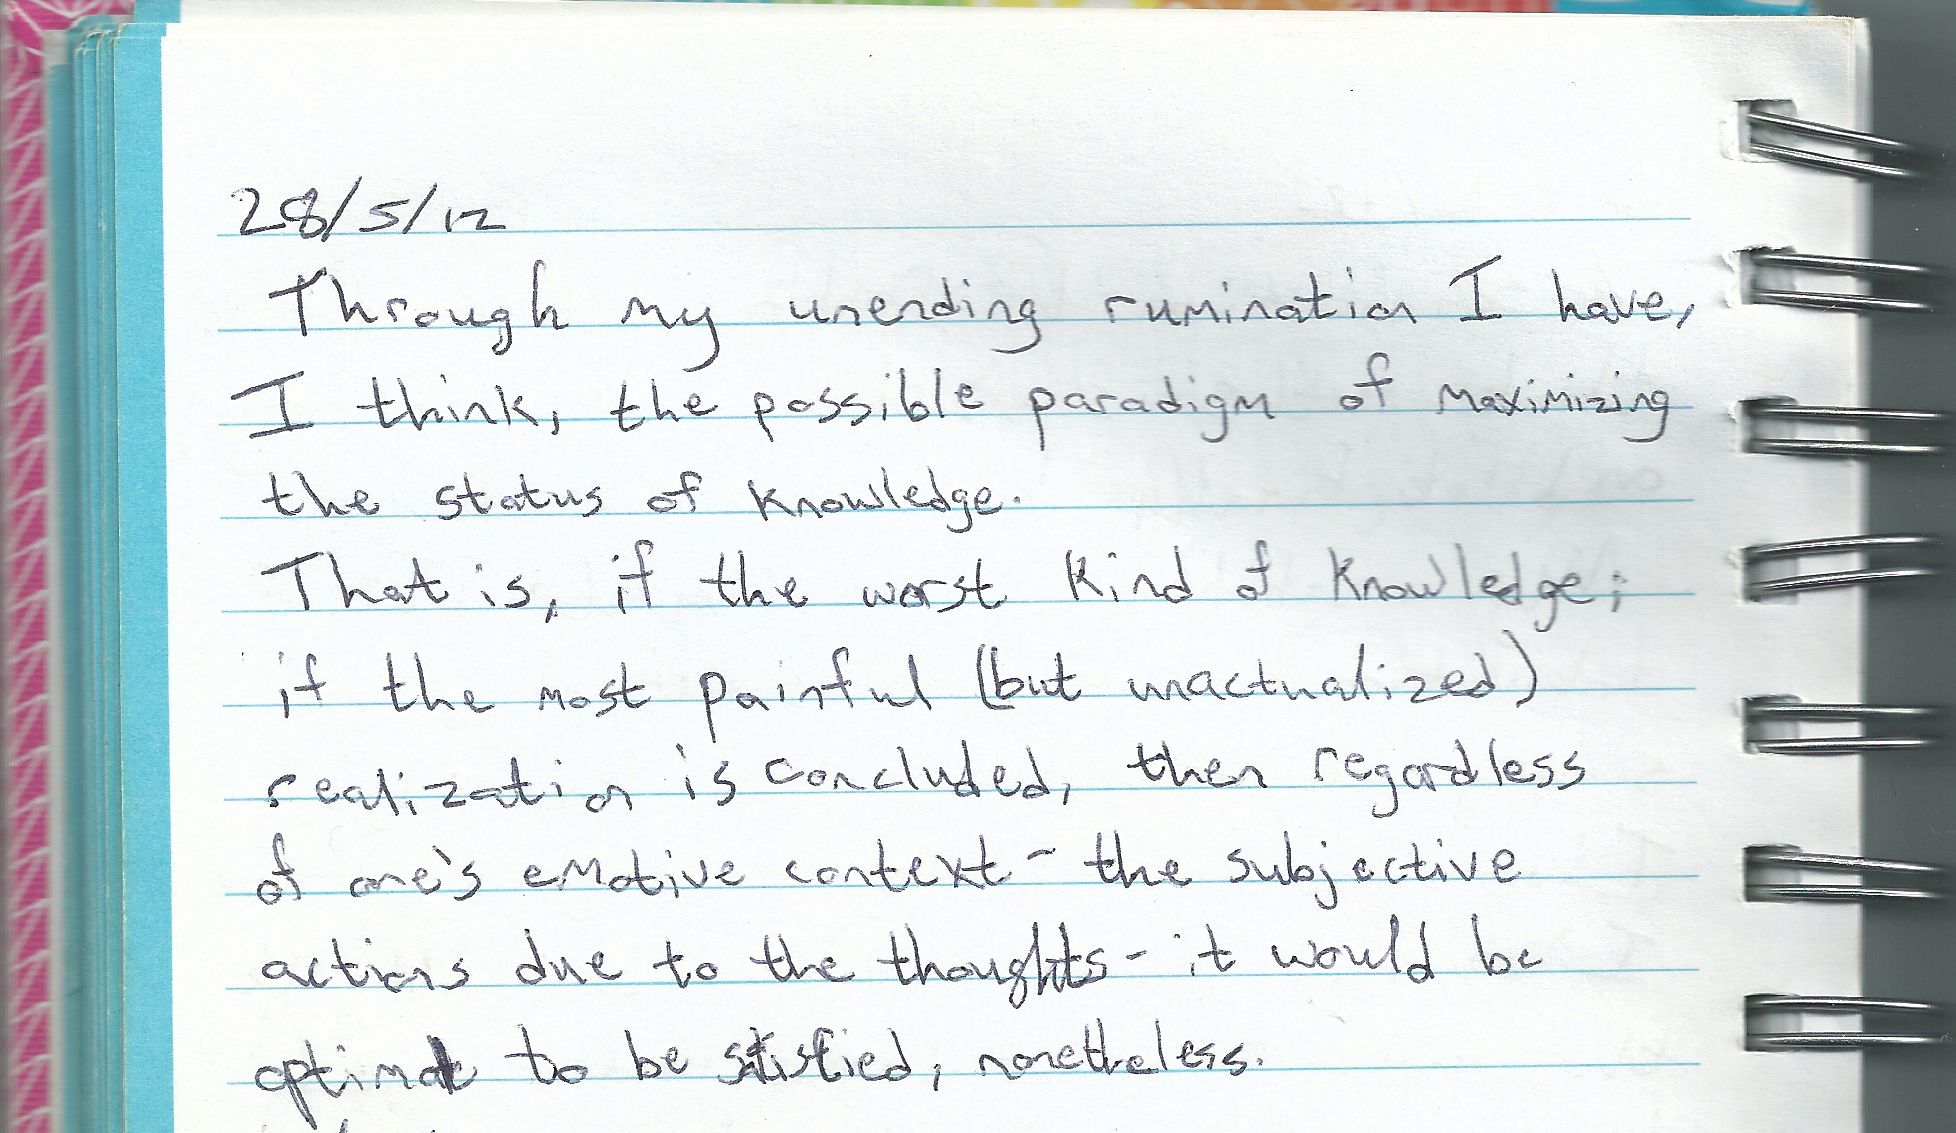 28/5/12
Through my unending rumination I have,
I think, the possible paradigm of maximizing
the status of knowledge.
That is, if the worst kind of knowledge;
if the most painful (but unactualized)
realization is concluded, then regardless
of one's emotive context - the subjective
actions due to the thoughts - it would be
optimal to be satisfied, nonetheless.